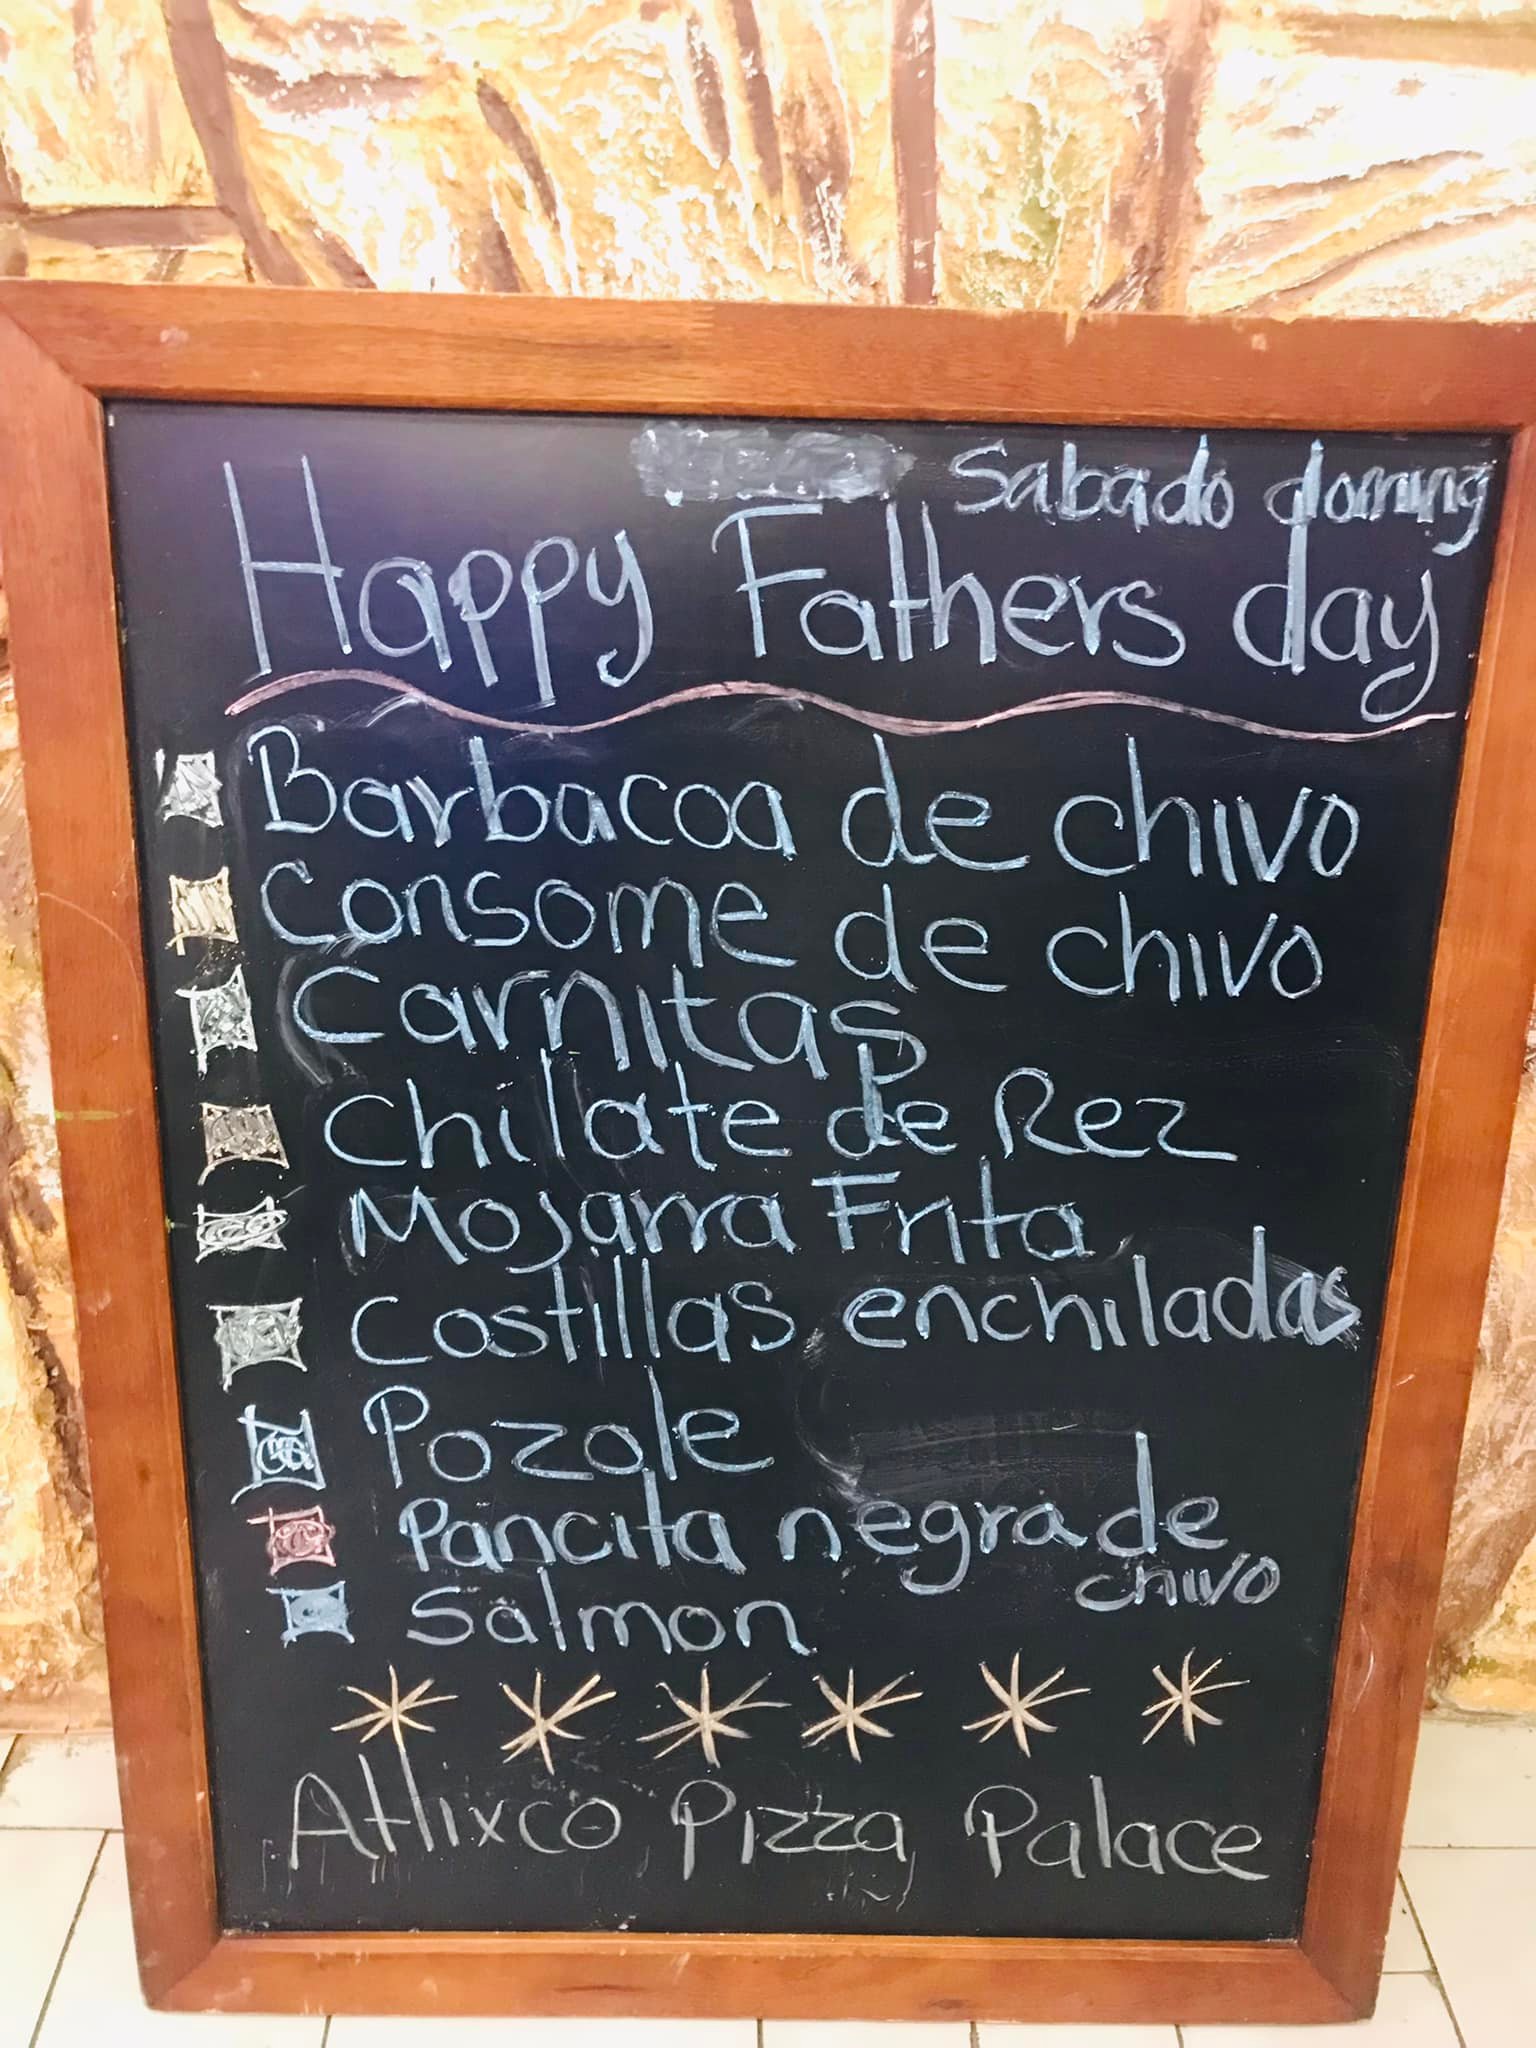 Sabado doming
Happy Fathers day
Barbacoa de chivo
Consome de chivo
Carnitas
Chilate de Rez
Mojarra Frita
Costillas enchiladas
Pozole
Pancita negra de
chivo
Salmon
Atlixco Pizza Palace